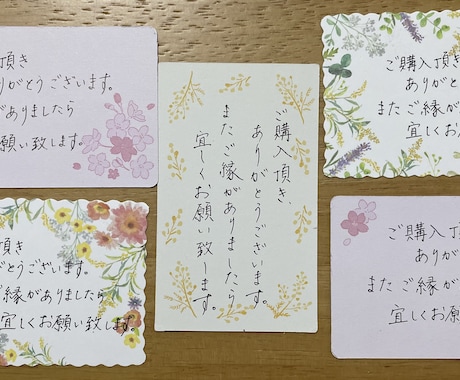 頂き
りがとうございます。
がありましたら
願い致します。
ご購入頂き、
ありがとうございます。
またご縁がありましたら
宜しくお願い致します。
ご購入頂き
ありがと
またご縁があ
宜しくお
頂き
とうございます。
ご縁がありましたら
宜しくお願い致します。
ご購入頂
ありが
またご縁が
宜しくお